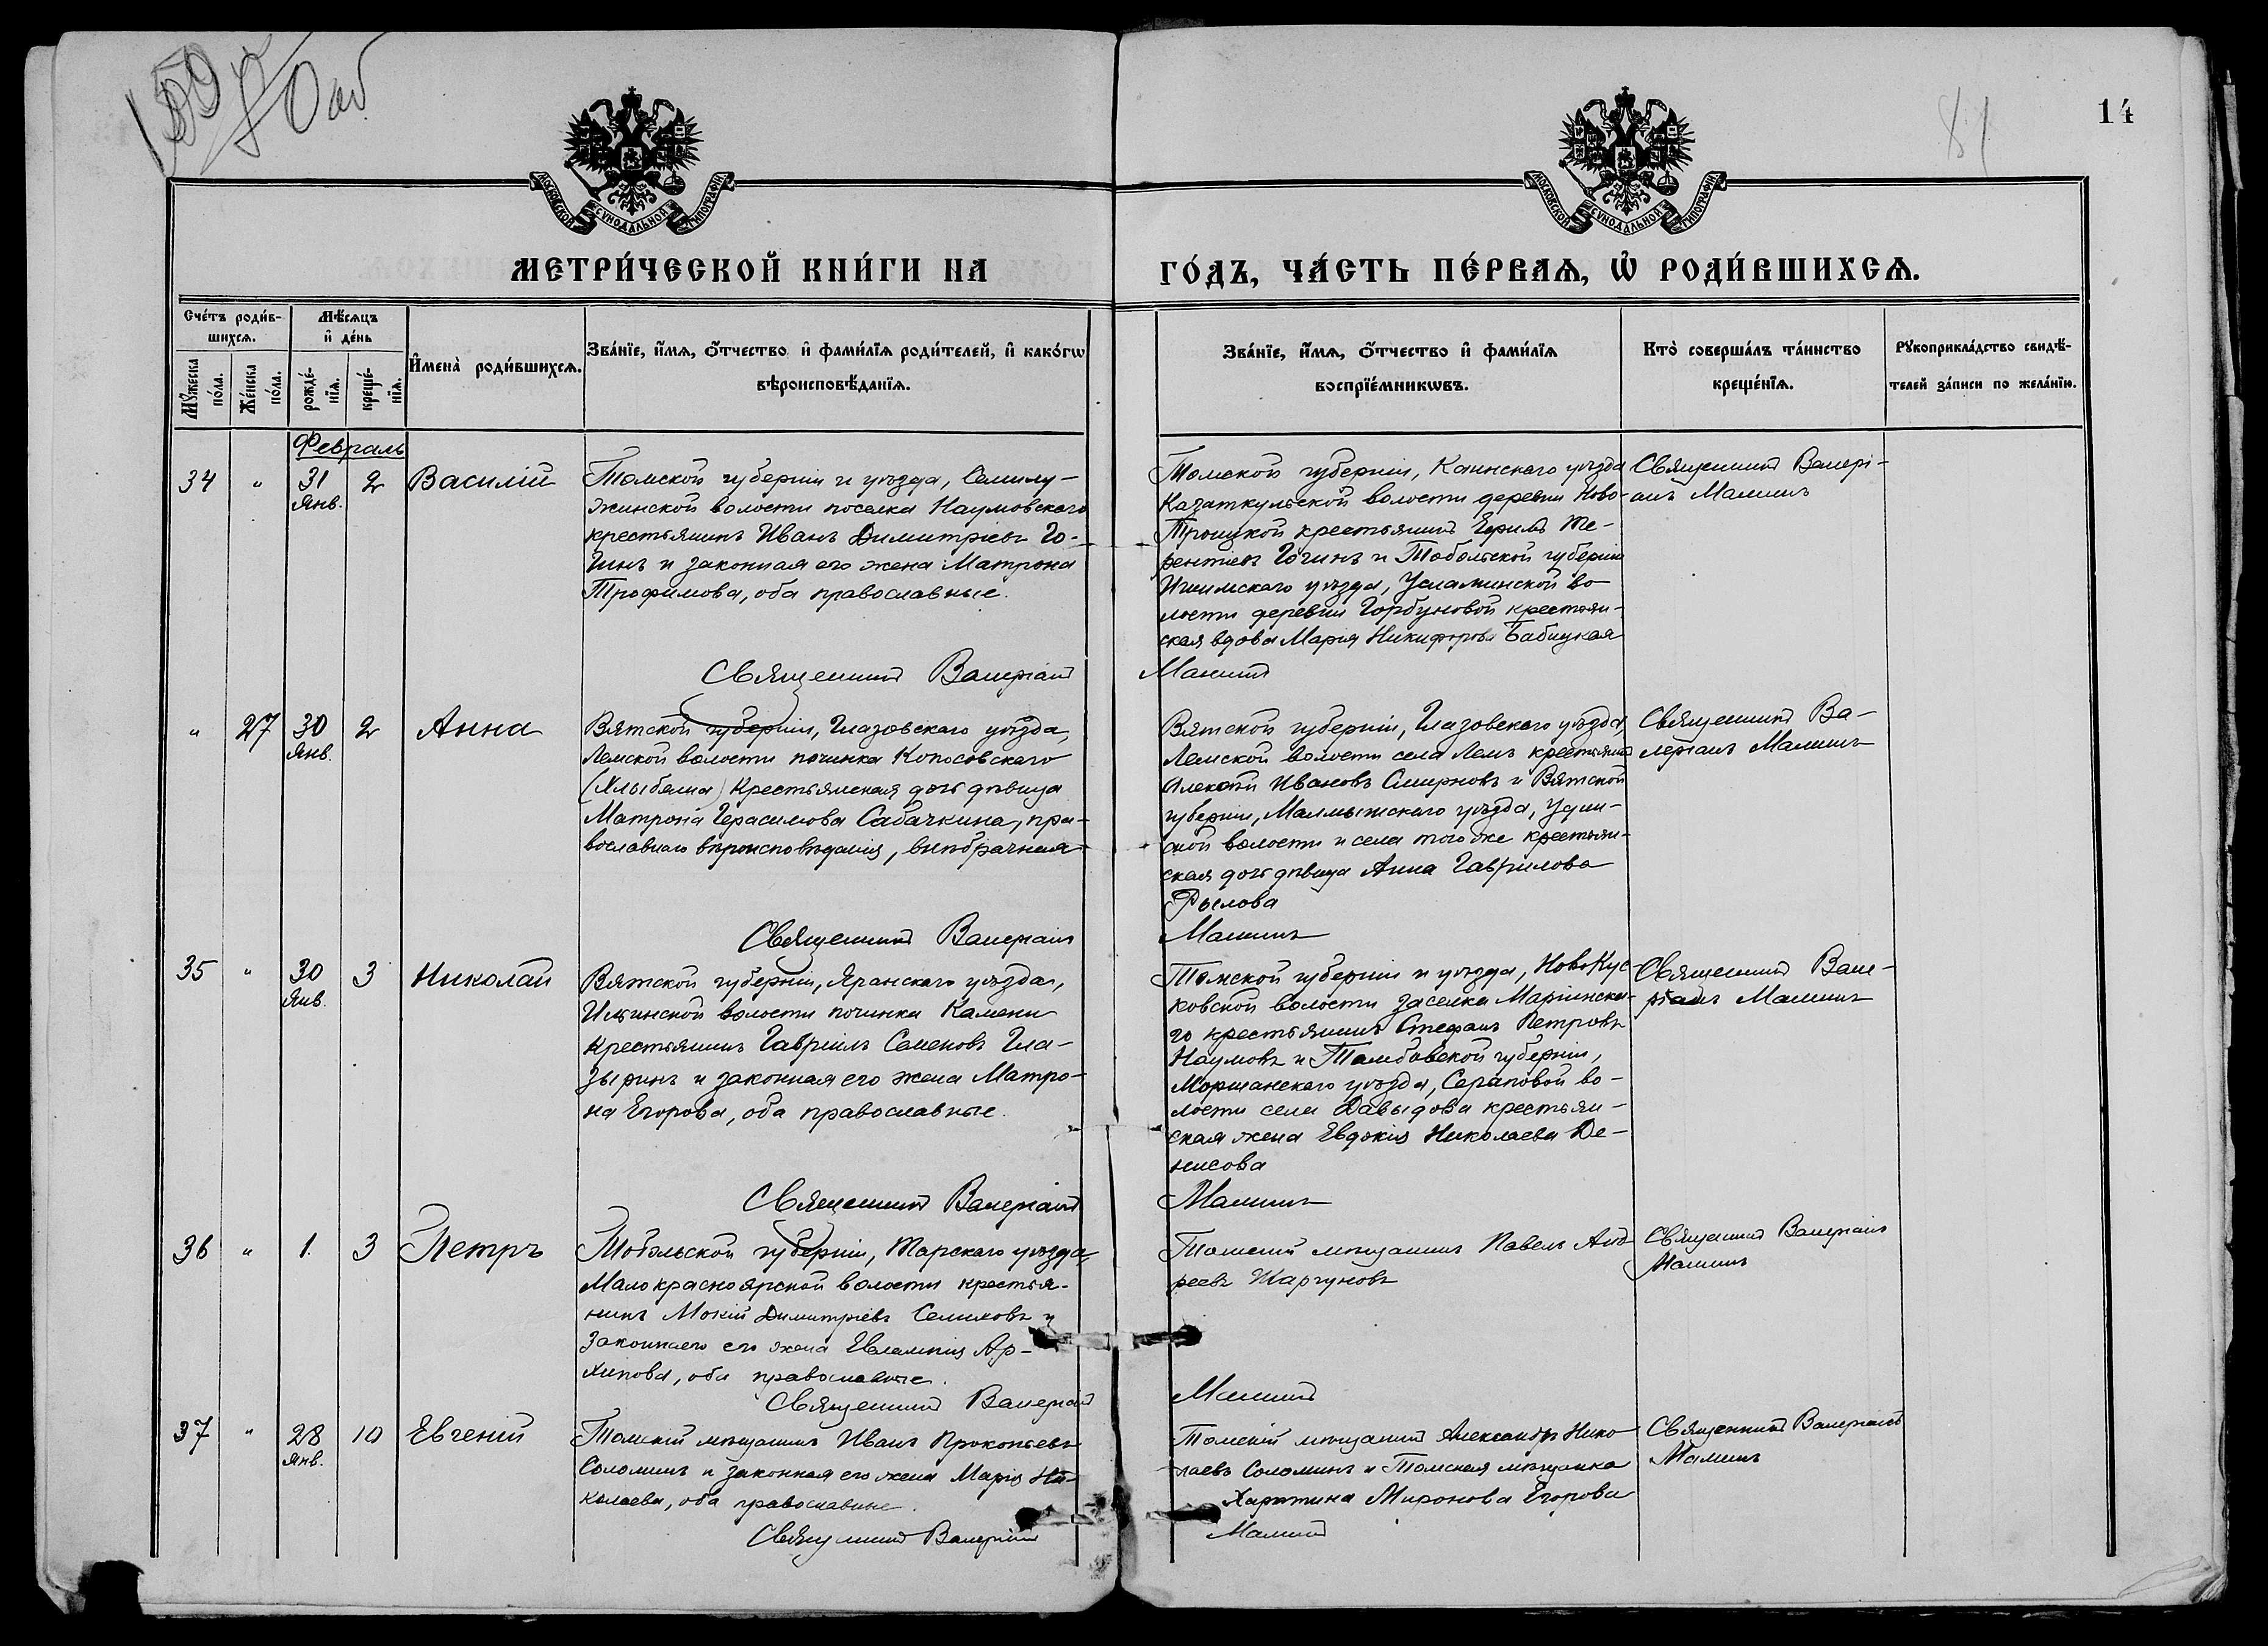 80 об
81
14
МОСКОВСКОЙ СѴНОДАЛЬНОЙ ТИПОГРАФІИ
МОСКОВСКОЙ СѴНОДАЛЬНОЙ ТИПОГРАФІИ
МЕТРИ́ЧЕСКОЙ КНИ́ГИ НА
ГО́ДЪ, ЧА́СТЬ ПЕ́РВАѦ, Ѡ РОДИ́ВШИХСѦ.
Сче́тъ роди́в-
шихсѧ.
Мꙋжеска
по́ла.
Же́нска
по́ла.
Мѣ́сяцъ
и҆ де́нь
рожде́-
нїѧ.
креще́-
нїѧ.
И҆мена̀ роди́вшихсѧ.
Зва́нїе, и҆́мѧ, ѻ҆́тчество и҆ фами́лїѧ роди́телей, и҆ како́гѡ
вѣроисповѣ́данїѧ.
Зва́нїе, и҆́мѧ, ѻ҆́тчество и҆ фами́лїѧ
воспрїе́мникѡвъ.
Кто̀ соверша́лъ та́инство
креще́нїѧ.
Рꙋкоприкла́дство свидѣ́-
телей за́писи по жела́нїю.
Февраль
34 " 31 Янв. 2 Василій
Томской губерніи и уѣзда, Семилу-
жинской волости поселка Наумовскаго
крестьянинъ Иванъ Димитріевъ Го-
гинъ и законная его жена Матрона
Трофимова, оба православные.
Томской губерніи, Каинскаго уѣзда
Казаткульской волости деревни Ново-
Троицкой крестьянинъ Ефимъ Те-
рентіевъ Гогинъ и Тобольской губерніи
Ишимскаго уѣзда, Усламинской во-
лости деревни Горбуновой крестьян-
ская вдова Марія Никифорова Бабицкая
Священникъ Валері-
анъ Маминъ
Священникъ Валеріанъ
Маминъ
" 27 30 Янв. 2 Анна
Вятской губерніи, Глазовскаго уѣзда,
Лемской волости починка Копосовскаго
(Клыбелиа) Крестьянская дочь дѣвица
Матрона Герасимова Сабачкина, пра-
вославнаго вѣроисповѣданія, внѣбрачная
Вятской губерніи, Глазовскаго уѣзда,
Лемской волости села Лемъ крестьянинъ
Алексѣй Ивановъ Смирновъ и Вятской
губерніи, Малмыжскаго уѣзда,
волости и села того же крестьян-
ская дочь дѣвица Анна Гаврилова
Рылова
Священникъ Ва-
леріанъ Маминъ
Священникъ Валеріанъ
Маминъ
35 " 30 Янв. 3 Николай
Вятской губерніи, Яранскаго уѣзда,
Ильинской волости починка Камени
крестьянинъ Гавріилъ Семеновъ Гла-
зыринъ и законная его жена Матро-
на Егорова, оба православные.
Томской губерніи и уѣзда, НовоКус-
ковской волости заселка Маріинска-
го крестьянинъ Стефанъ Петровъ
Наумовъ и Тамбовской губерніи,
Моршанскаго уѣзда, Серповой во-
лости села Давыдова крестьян-
ская жена Евдокія Николаева Де-
нисова
Священникъ Вале-
ріанъ Маминъ
Священникъ Валеріанъ
Маминъ
36 " 1. 3 Петръ
Тобольской губерніи, Тарскаго уѣзда,
Малокрасноярской волости крестья-
нинъ Мокій Димитріевъ Селиховъ и
законнаго его жена Евлампія Ар-
хипова, оба православные.
Томскій мѣщанинъ Павелъ Анд-
реевъ Шаргуновъ
Священникъ Валеріанъ
Маминъ
Священникъ Валеріанъ
Маминъ
37 " 28 Янв. 10 Евгеній
Томскій мѣщанинъ Иванъ Прокопьевъ
Соломинъ и законная его жена Марія Ни-
колаева, оба православные.
Томскій мѣщанинъ Александръ Нико-
лаевъ Соломинъ и Томская мѣщанка
Харитина Миронова Егорова
Священникъ Валеріанъ
Маминъ
Священникъ Валеріанъ
Маминъ